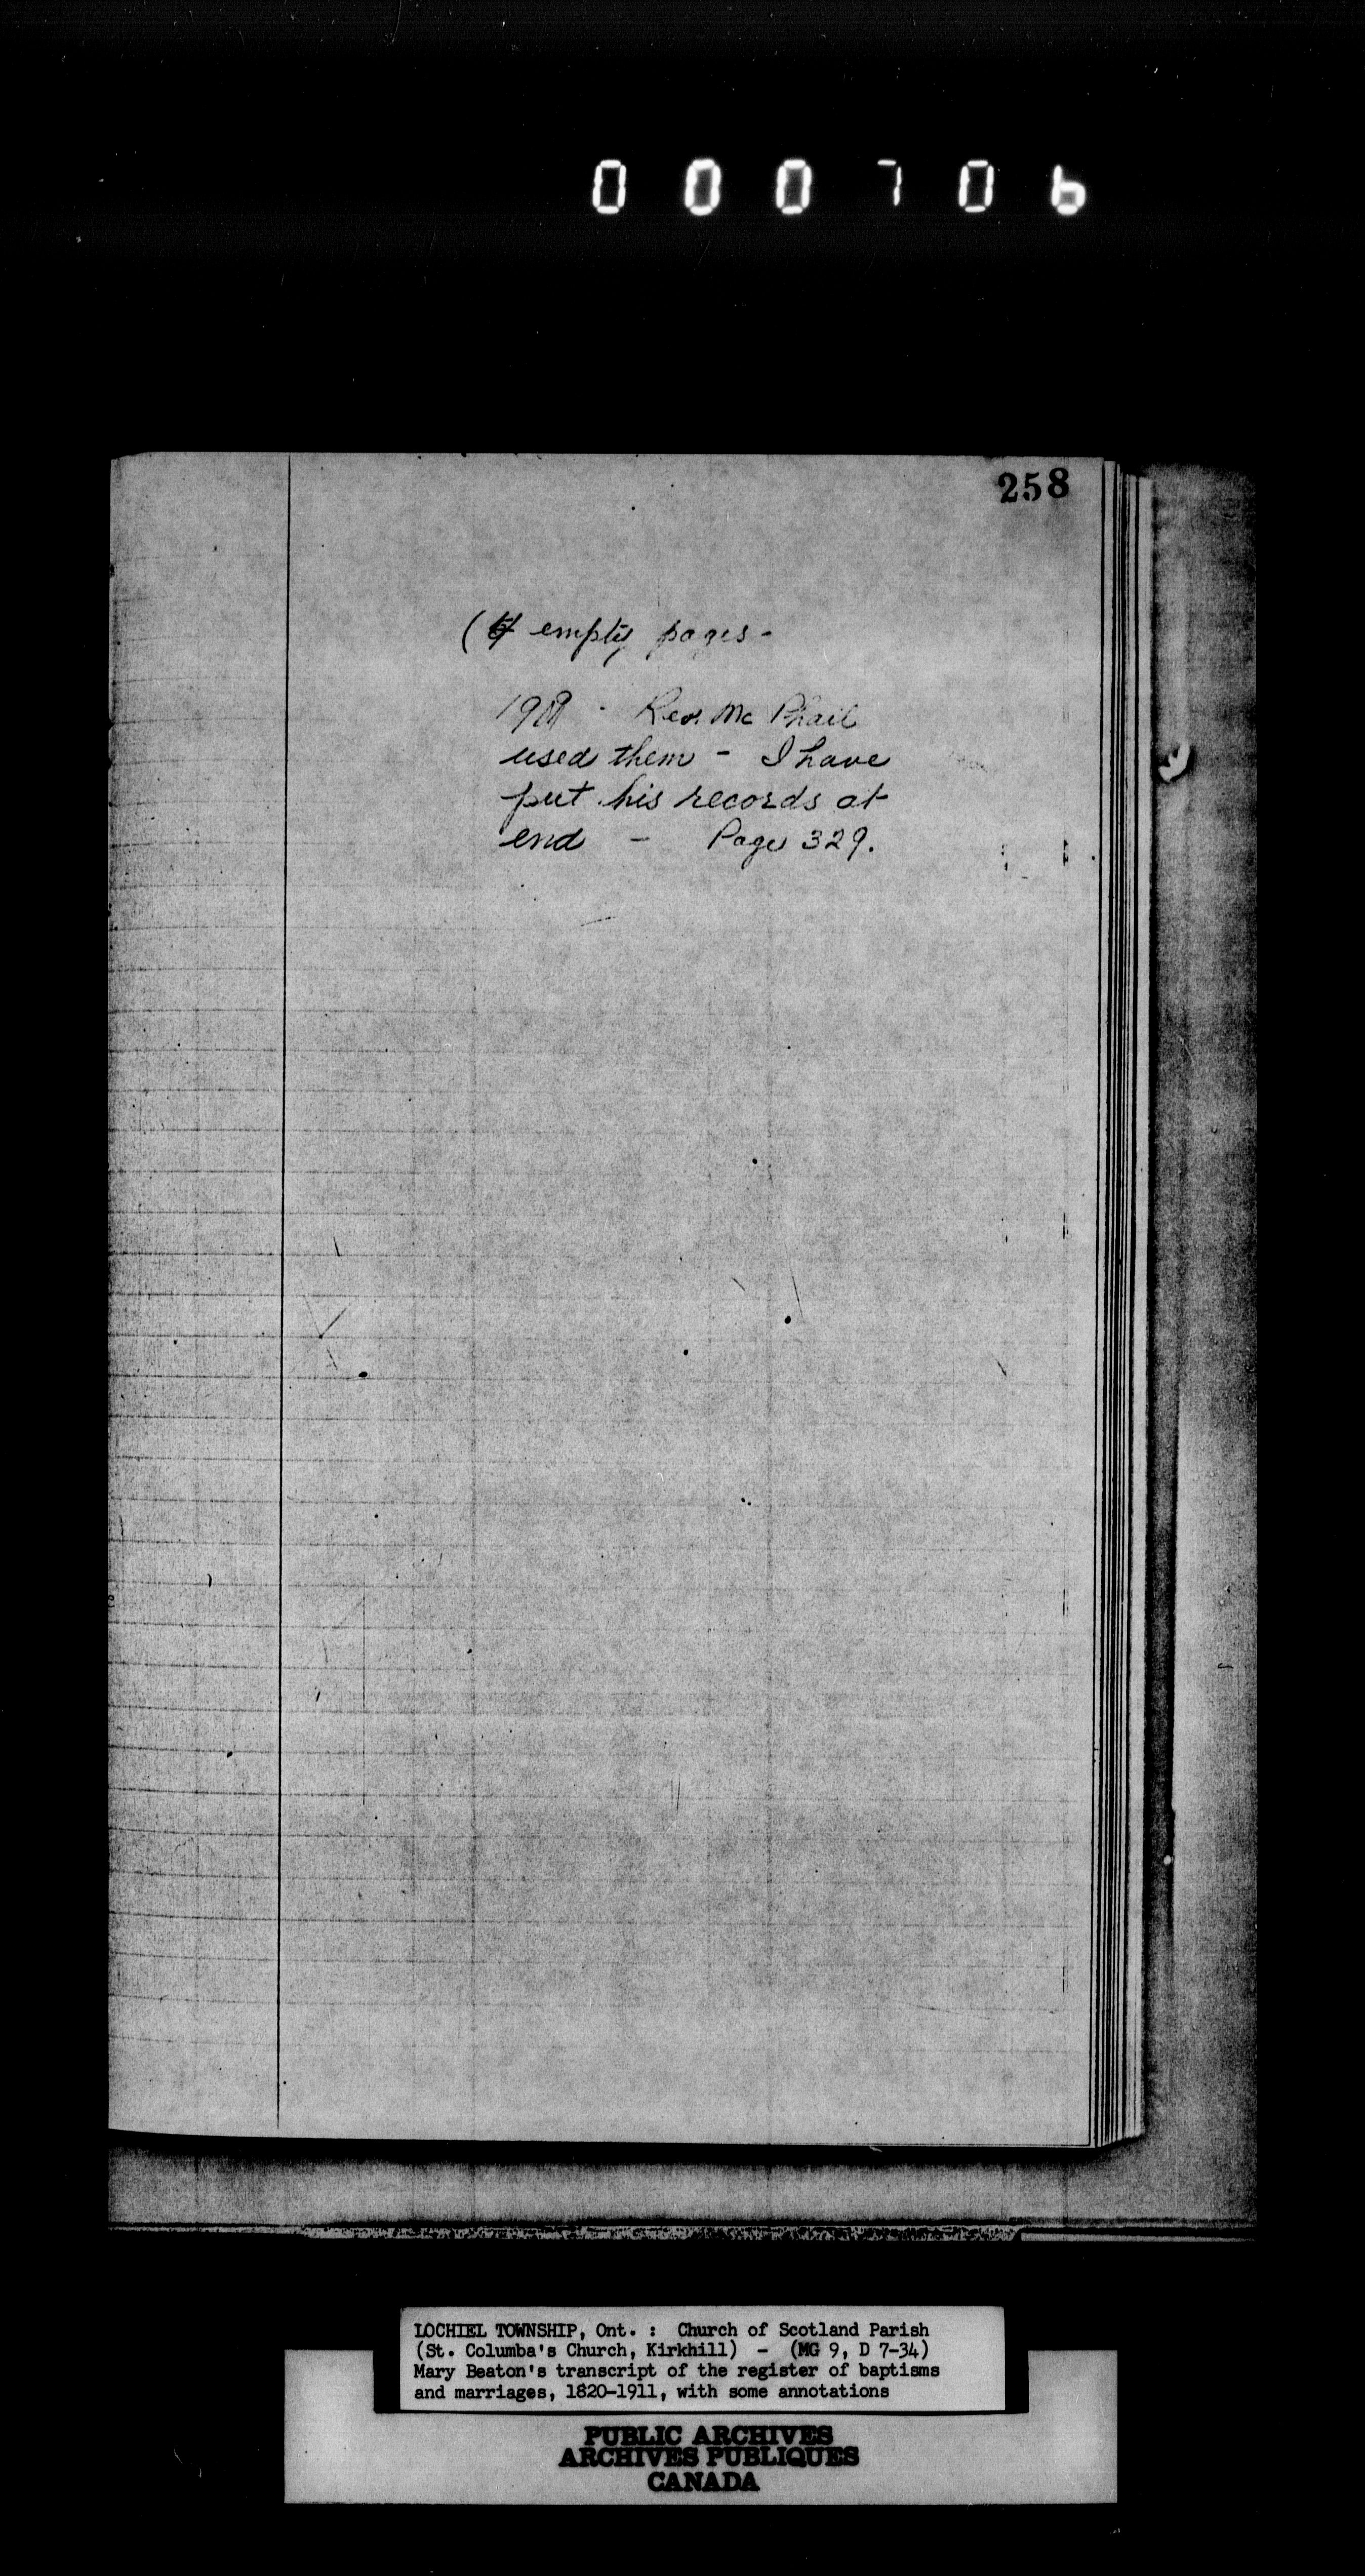 000706
258
( empty pages -
Rev. Mc Phail
used them - I have
put his records at
end - Page 329.
LOCHIEL TOWNSHIP, Ont. : Church of Scotland Parish
(St. Columba's Church, Kirkhill) - (MG 9, D 7-34)
Mary Beaton's transcript of the register of baptisms
and marriages, 1820-1911, with some annotations
PUBLIC ARCHIVES
ARCHIVES PUBLIQUES
CANADA